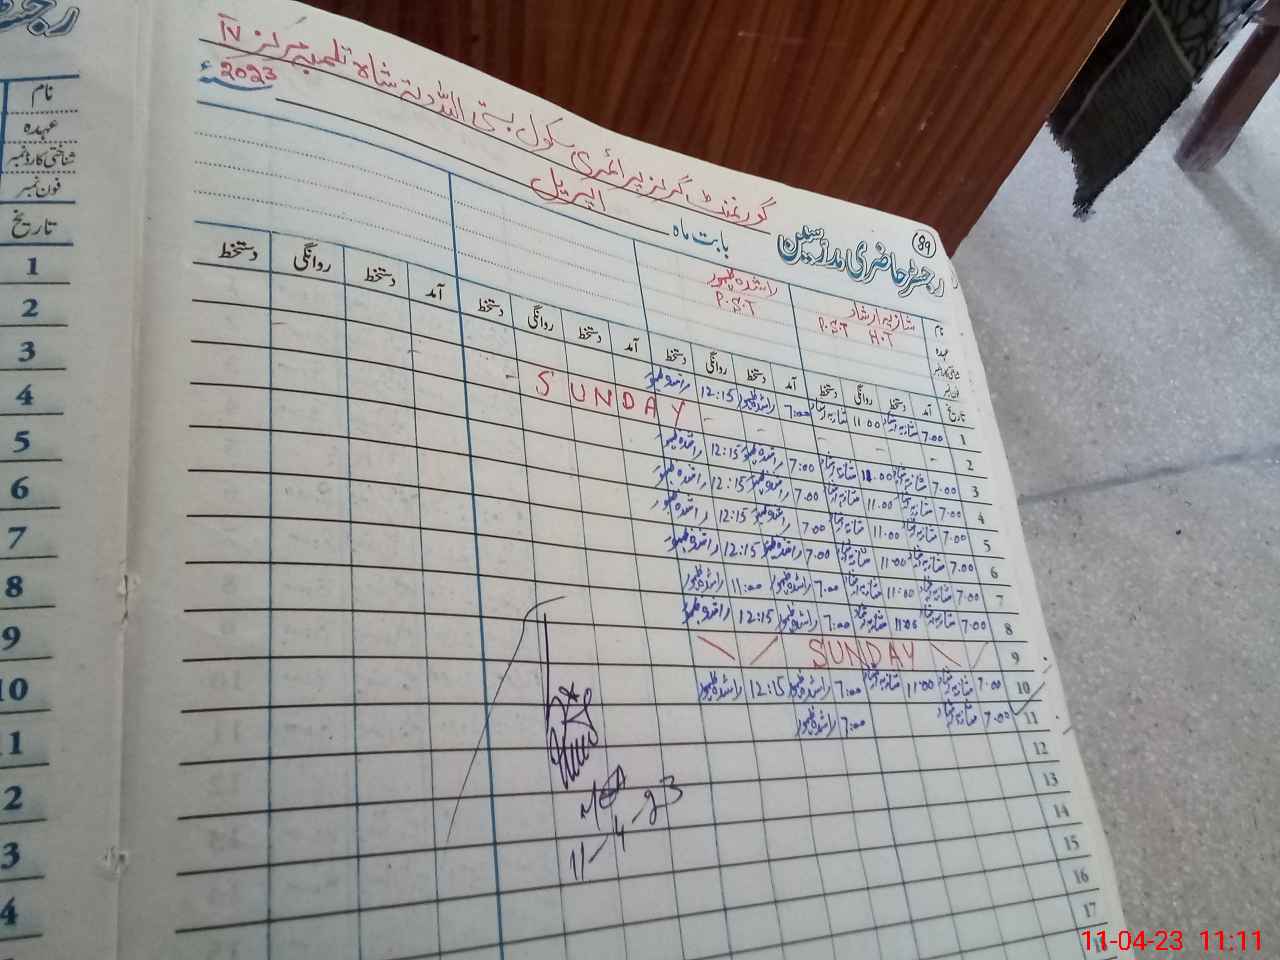 رجسٹر حاضری مدرسین
89
گورنمنٹ گرلز پرائمری سکول بستی اللہ دتہ شاہ تلمبہ مرکز IV
بابت ماہ اپریل 2023ء
نام شازیہ ارشاد راشدہ ظہور
عہدہ P.S.T H.T P.S.T
شناختی کارڈ نمبر
فون نمبر
تاریخ آمد دستخط روانگی دستخط آمد دستخط روانگی دستخط آمد دستخط روانگی دستخط آمد دستخط روانگی دستخط
1 7.00 شازیہ ارشاد 11.00 شازیہ ارشاد 7:00 راشدہ ظہور 12:15 راشدہ ظہور
2 SUNDAY
3 7.00 شازیہ ارشاد 11.00 شازیہ ارشاد 7:00 راشدہ ظہور 12:15 راشدہ ظہور
4 7.00 شازیہ ارشاد 11.00 شازیہ ارشاد 7.00 راشدہ ظہور 12:15 راشدہ ظہور
5 7.00 شازیہ ارشاد 11.00 شازیہ ارشاد 7.00 راشدہ ظہور 12:15 راشدہ ظہور
6 7.00 شازیہ ارشاد 11.00 شازیہ ارشاد 7.00 راشدہ ظہور 12:15 راشدہ ظہور
7 7.00 شازیہ ارشاد 11:00 شازیہ ارشاد 7:00 راشدہ ظہور 11:00 راشدہ ظہور
8 7.00 شازیہ ارشاد 11.05 شازیہ ارشاد 7:00 راشدہ ظہور 12:15 راشدہ ظہور
9 SUNDAY
10 7.00 شازیہ ارشاد 11.00 شازیہ ارشاد 7:00 راشدہ ظہور 12:15 راشدہ ظہور
11 7.00 شازیہ ارشاد 7:00 راشدہ ظہور
12
13
14
15
16
17
18
11-4-23
نام
عہدہ
شناختی کارڈ نمبر
فون نمبر
تاریخ
1
2
3
4
5
6
7
8
9
10
11-04-23 11:11